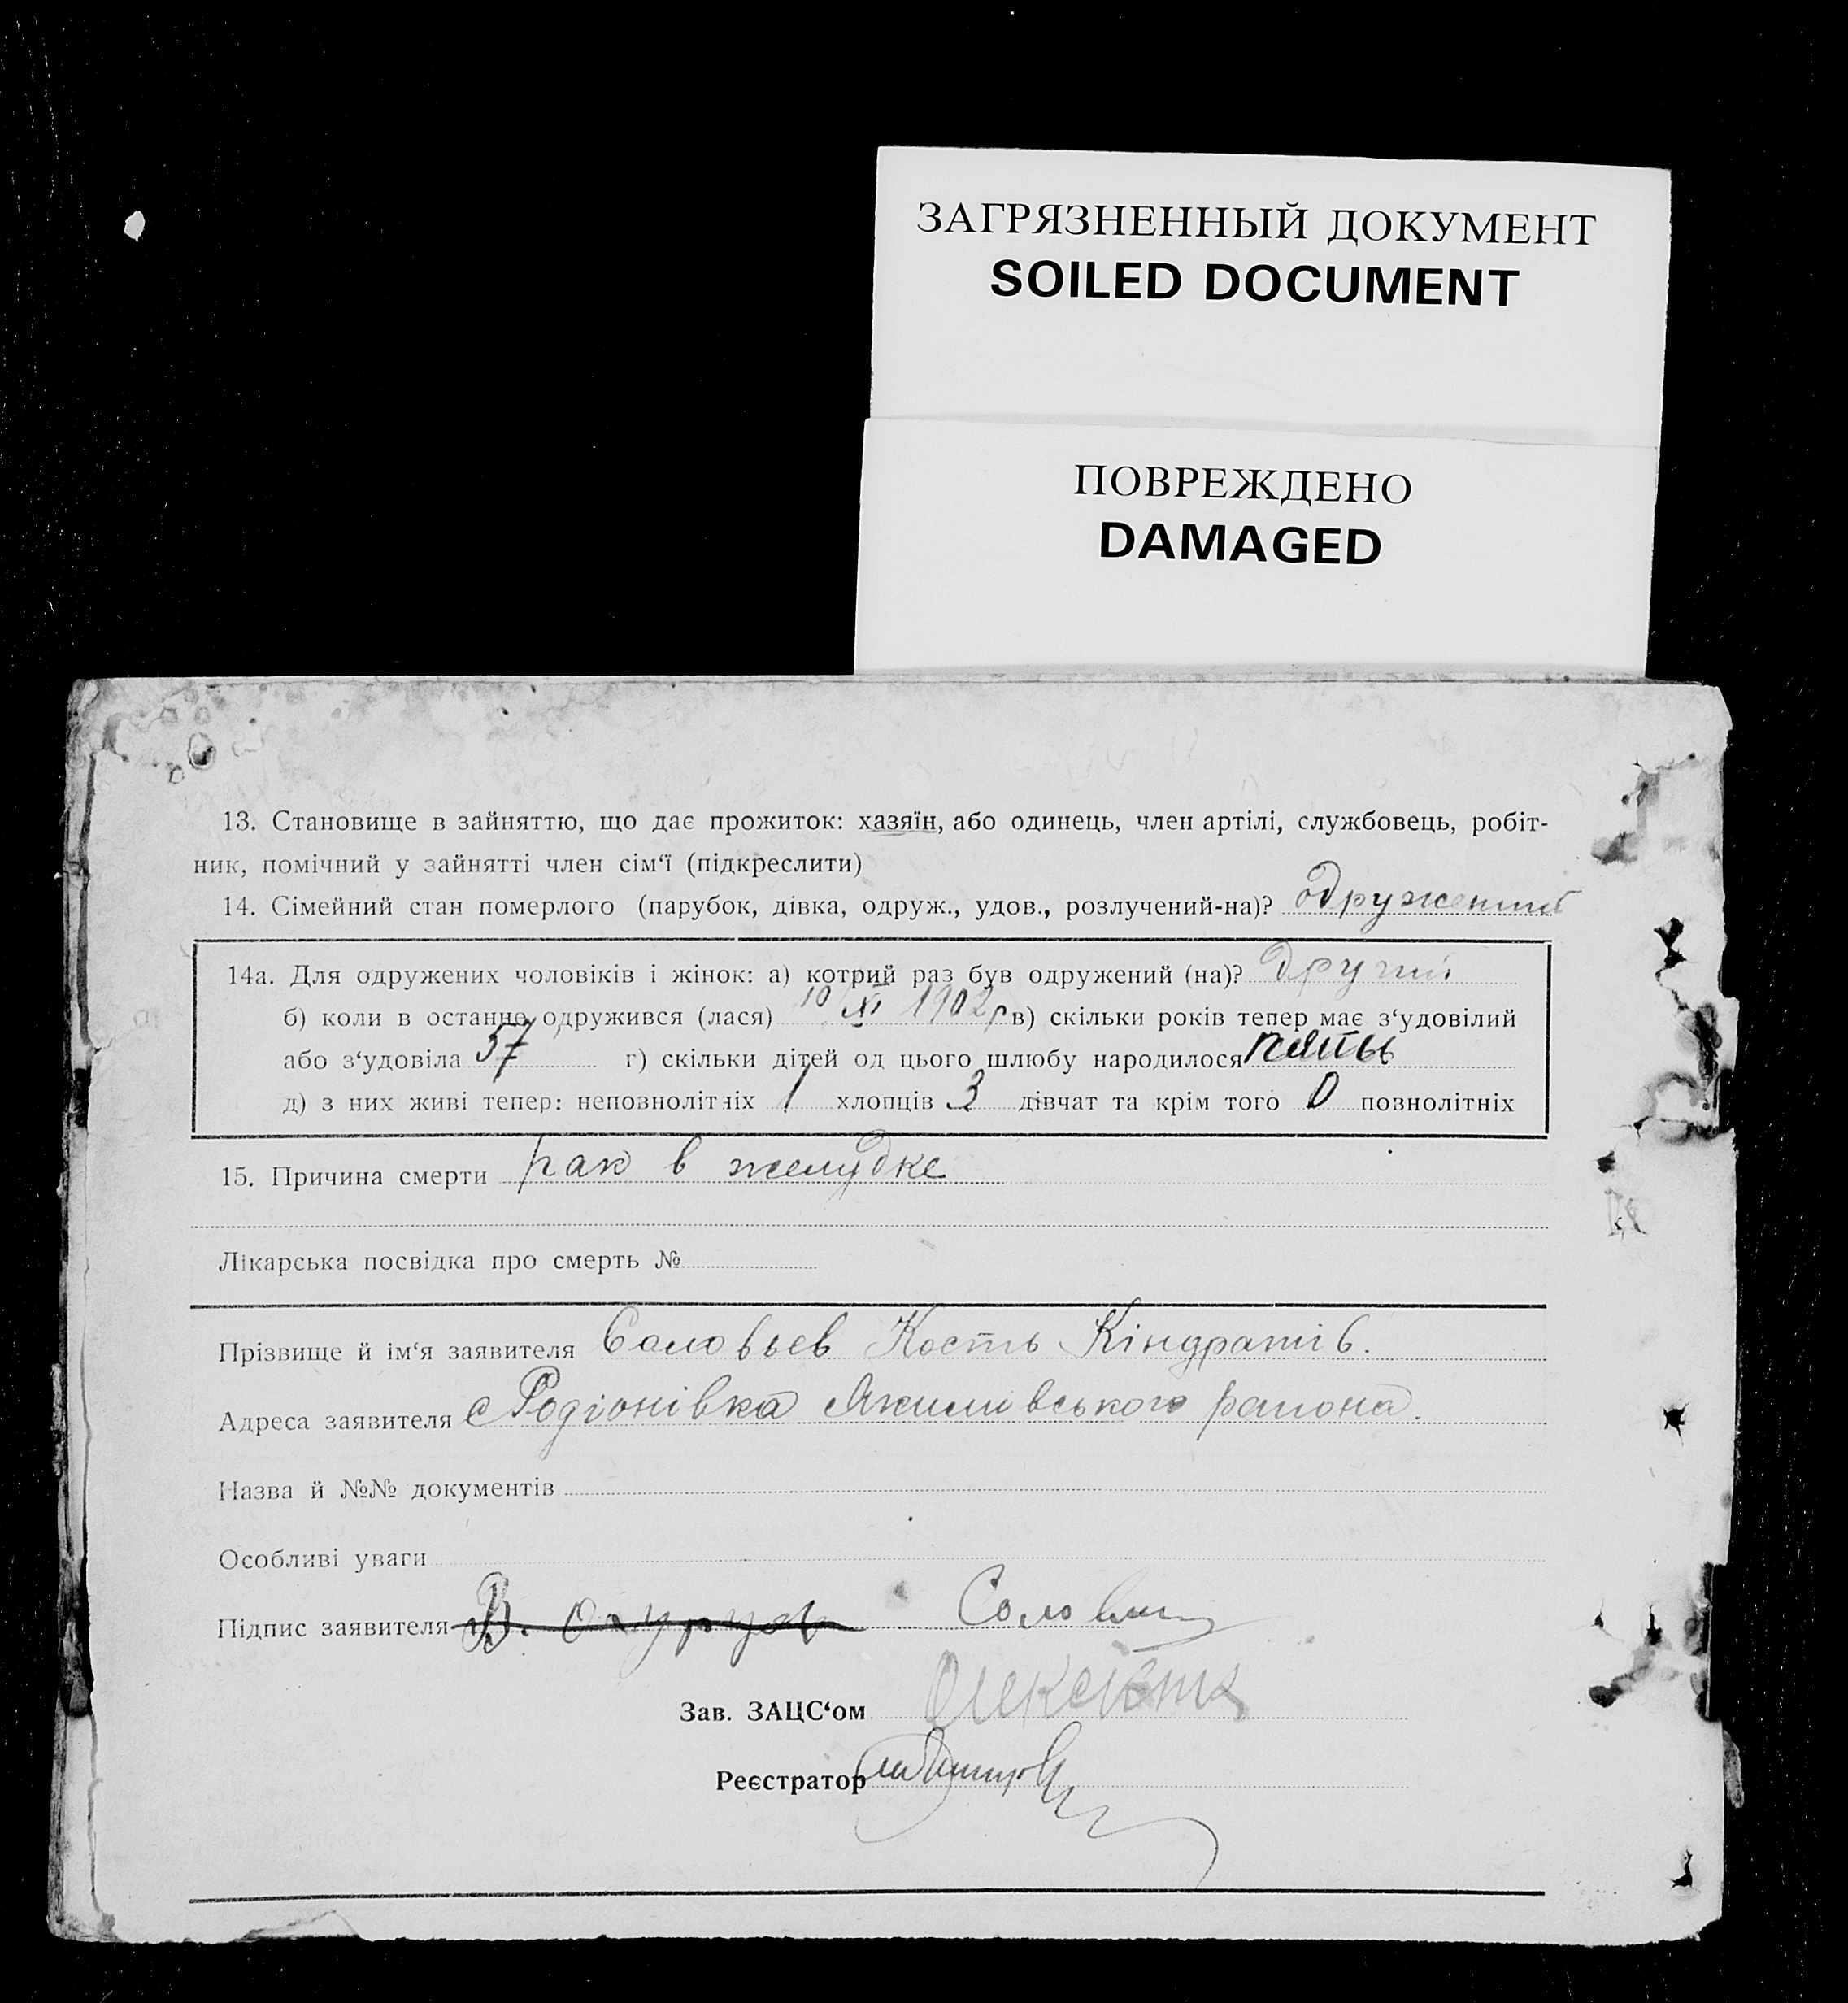 ЗАГРЯЗНЕННЫЙ ДОКУМЕНТ
SOILED DOCUMENT
ПОВРЕЖДЕНО
DAMAGED
13. Становище в зайняттю, що дає прожиток: хазяїн, або одинець, член артілі, службовець, робіт-
ник, помічний у зайнятті член сім‘ї (підкреслити)
14. Сімейний стан померлого (парубок, дівка, одруж., удов., розлучений-на)? одружений
14а. Для одружених чоловіків і жінок: а) котрий раз був одружений (на)? другий
б) коли в останнє одружився (лася) 10 XI 1902 р в) скільки років тепер має з‘удовілий
або з‘удовіла 57 г) скільки дітей од цього шлюбу народилося пять
д) з них живі тепер: неповнолітніх 1 хлопців 3 дівчат та крім того 0 повнолітніх
15. Причина смерти рак в желудке
Лікарська посвідка про смерть №
Прізвище й ім‘я заявителя Соловьев Кость Кіндратів.
Адреса заявителя с Родіонівка Якимівського района.
Назва й №№ документів
Особливі уваги
Підпис заявителя
Зав. ЗАЦС‘ом
Реєстратор